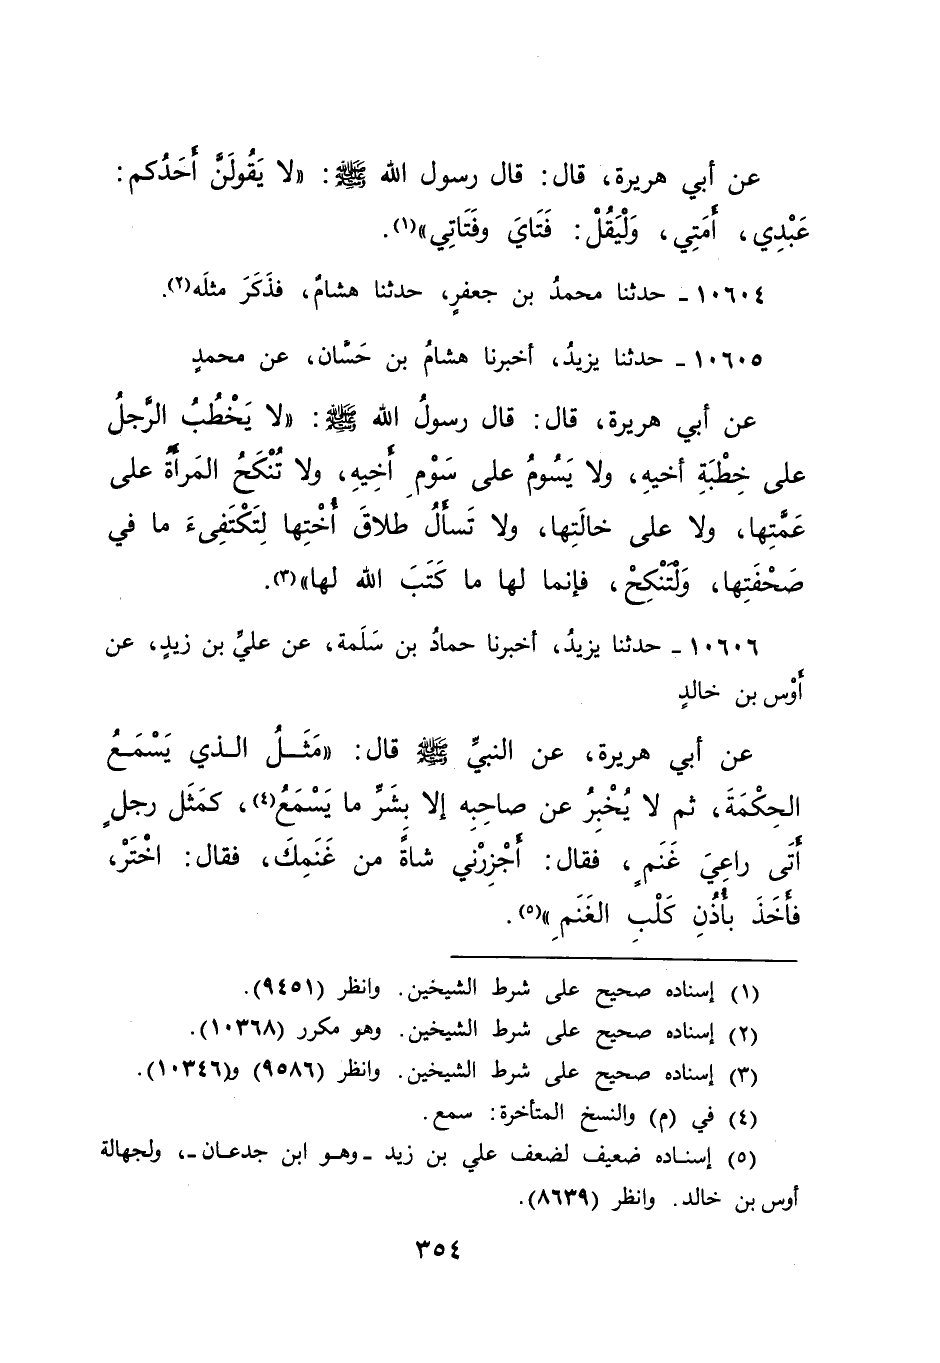 عن أبي هريرة، قال: قال رسول الله ﷺ: «لا يَقُولَنَّ أَحَدُكم:
عَبْدِي، أَمَتِي، وَلْيَقُلْ: فَتَايَ وفَتَاتِي»(١).
١٠٦٠٤ ـ حدثنا محمدُ بن جعفرٍ، حدثنا هشامٌ، فذَكَرَ مثلَه(٢).
١٠٦٠٥ ـ حدثنا يزيدُ، أخبرنا هشامُ بن حَسَّان، عن محمدٍ
عن أبي هريرة، قال: قال رسولُ الله ﷺ: «لا يَخْطُبُ الرَّجلُ
على خِطْبَةِ أخيهِ، ولا يَسُومُ على سَوْمِ أَخِيهِ، ولا تُنْكَحُ المَرأَةُ على
عَمَّتِها، ولا على خالَتِها، ولا تَسأَلُ طلاقَ أُخْتِها لِتَكْتَفِىءَ ما في
صَحْفَتِها، وَلْتَنْكِحْ، فإنما لها ما كَتَبَ الله لها»(٣).
١٠٦٠٦ ـ حدثنا يزيدُ، أخبرنا حمادُ بن سَلَمة، عن عليِّ بن زيدٍ، عن
أَوْس بن خالدٍ
عن أبي هريرة، عن النبيِّ ﷺ قال: «مَثَـلُ الـذي يَسْمَـعُ
الحِكْمَةَ، ثم لا يُخْبِرُ عن صاحِبِه إلا بِشَرِّ ما يَسْمَعُ(٤)، كمَثَل رجلٍ
أَتَى راعِيَ غَنَمٍ، فقال: أَجْزِرْني شاةً من غَنَمِكَ، فقال: اخْتَرْ،
فأَخَذَ بأُذُنِ كَلْبِ الغَنَمِ»(٥).
(١) إسناده صحيح على شرط الشيخين. وانظر (٩٤٥١).
(٢) إسناده صحيح على شرط الشيخين. وهو مكرر (١٠٣٦٨).
(٣) إسناده صحيح على شرط الشيخين. وانظر (٩٥٨٦) و(١٠٣٤٦).
(٤) في (م) والنسخ المتأخرة: سمع.
(٥) إسنـاده ضعيف لضعف علي بن زيد ـ وهـو ابن جدعـان ـ، ولجهالة
أوس بن خالد. وانظر (٨٦٣٩).
٣٥٤